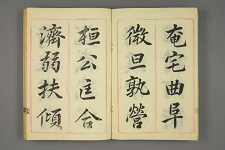 奄宅曲阜
微旦孰營
桓公匡合
濟弱扶傾